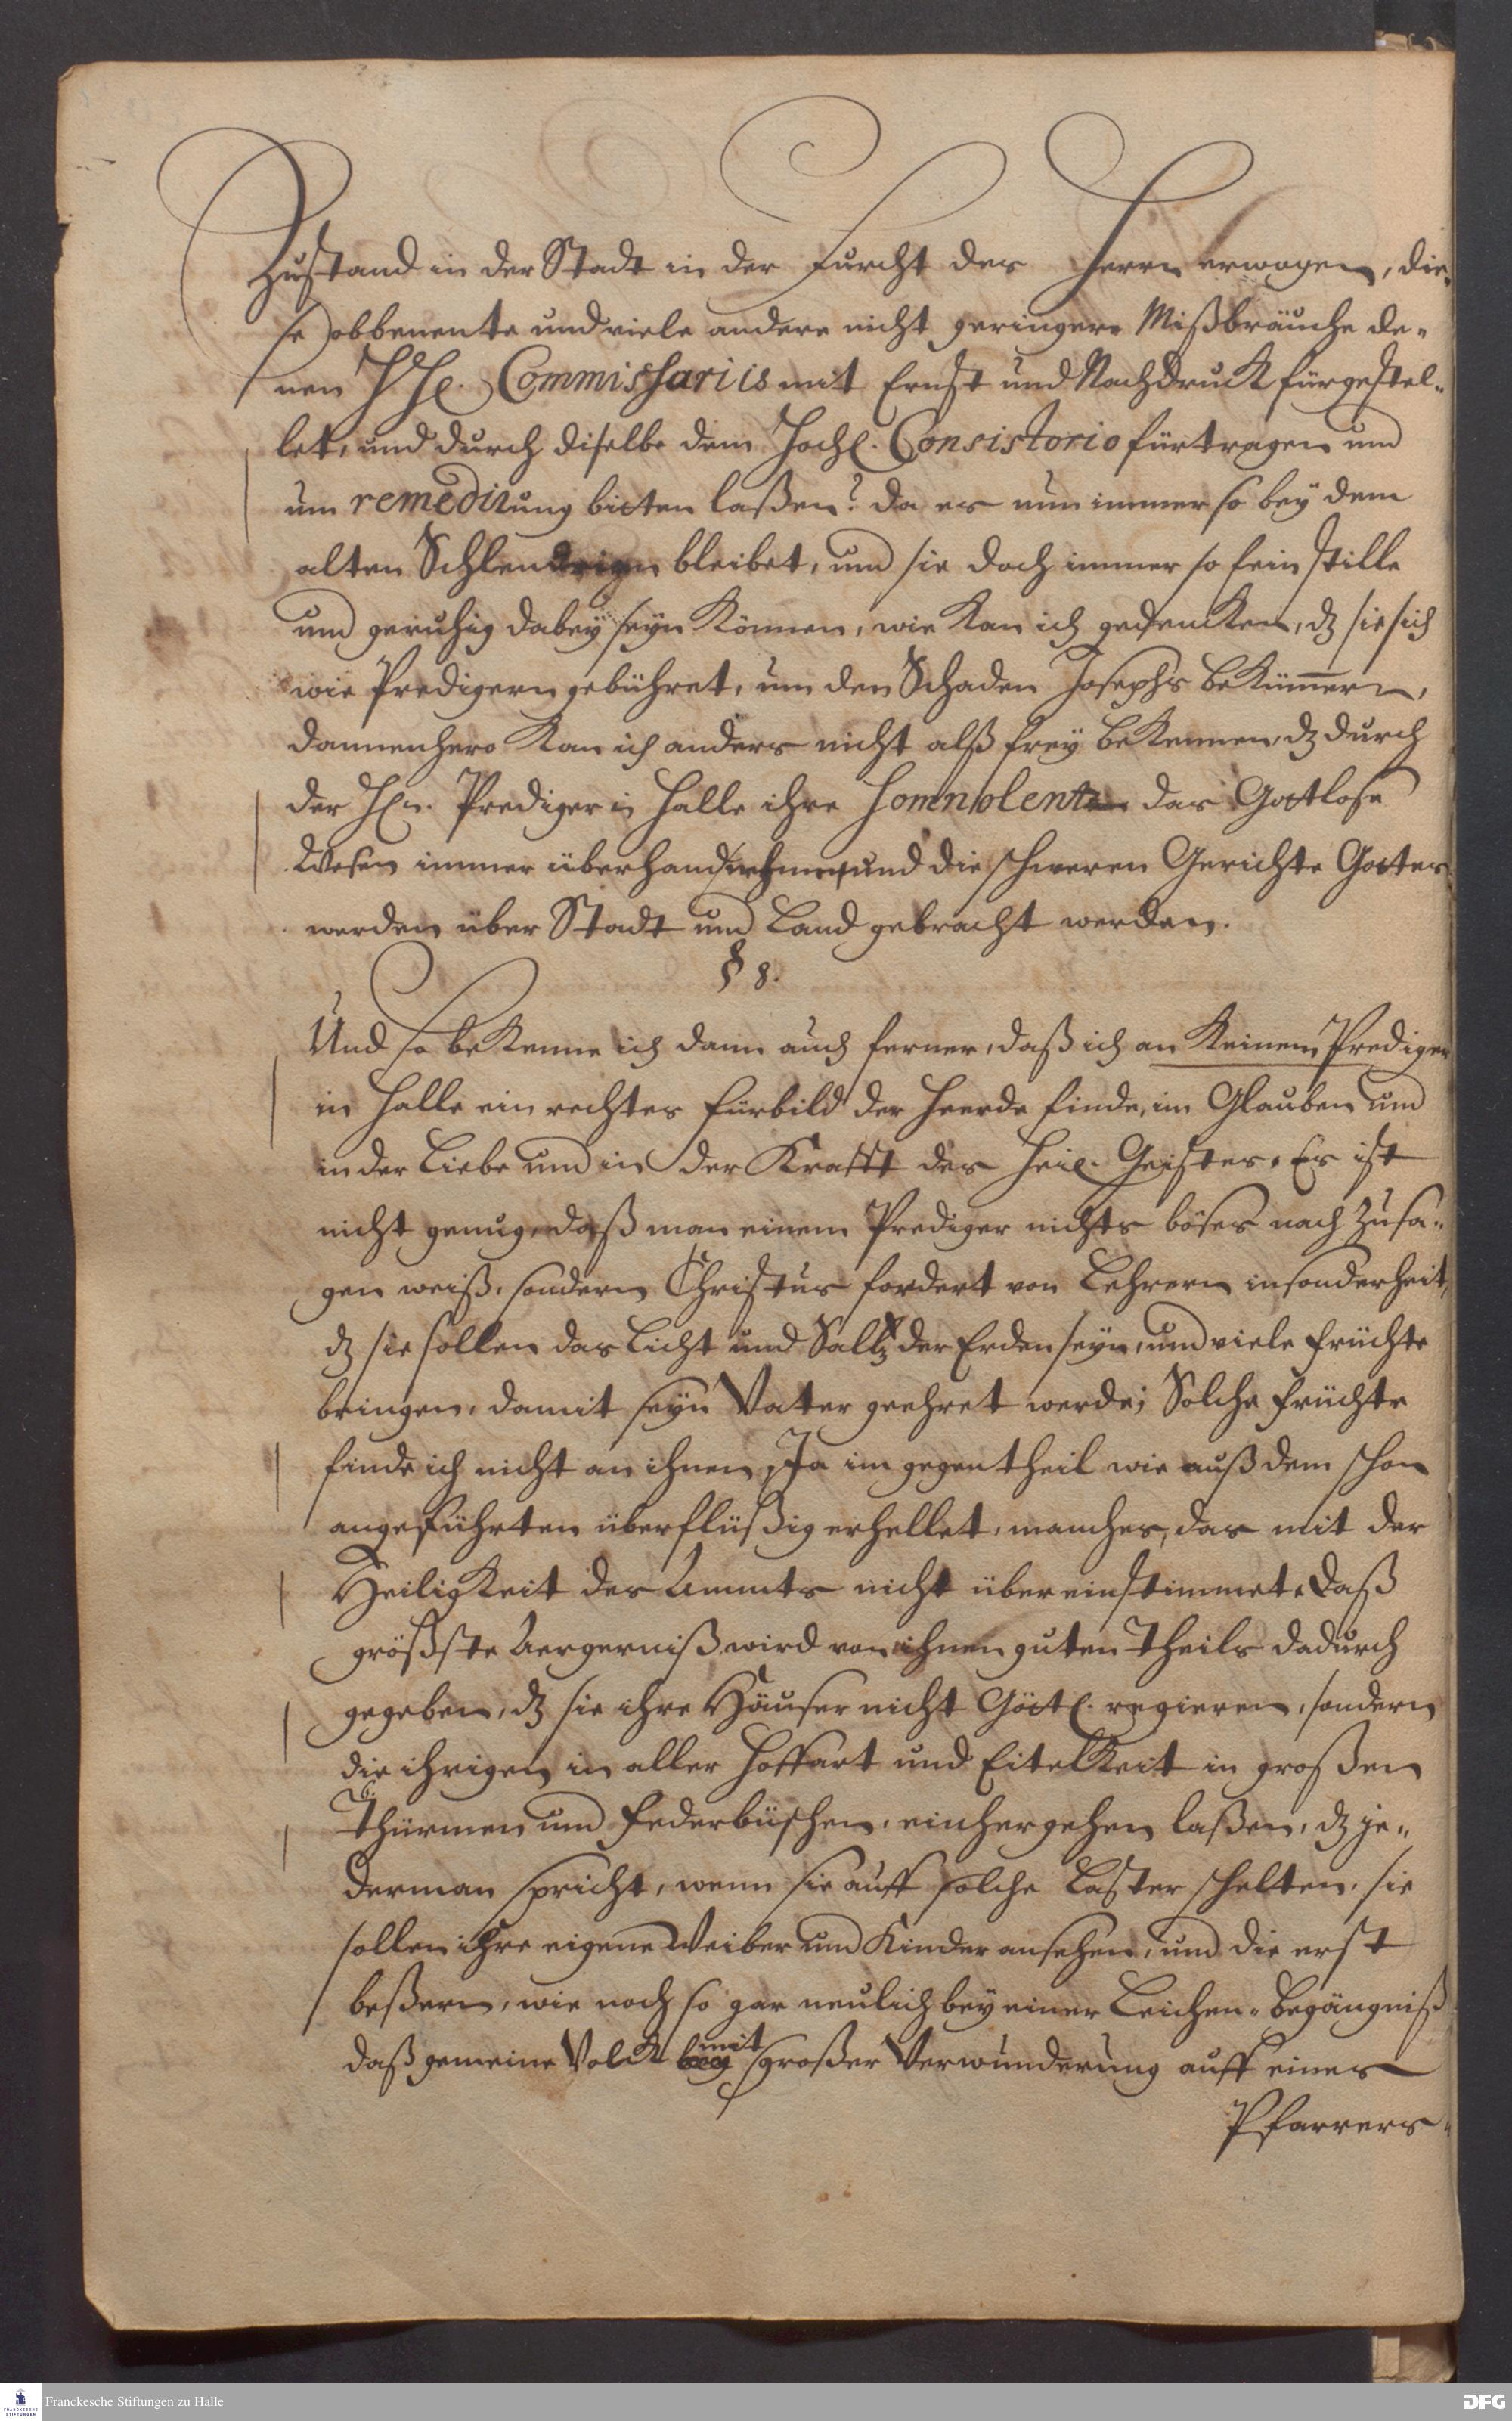 Zustand in der Stadt in der Furcht des Herrn erwogen, die-
se obbenente und viele andere nicht geringere Mißbräuche de-
nen HHl. Commissariis mit Ernst und Nachdruck fürgestel-
let, und durch diselbe dem Hochl. Consistorio fürtragen und
um remedirung bitten laßen? da es nun immer so bey dem
alten Schlendrian bleibet, und sie doch immer so fein stille
und geruhig dabey seyn Können, wie Kan ich gedencken, dz sie sich
wie Predigern gebühret, um den Schaden Josephs beKümmern,
dannenhero Kan ich anders nicht alß frey beKennen, dz durch
der Hln. Prediger in Halle ihre somnolentz das Gottlose
Wesen immer überhand nehmen und die schweren Gerichte Gottes
werden über Stadt und Land gebracht werden.
§ 8.
Und so beKenne ich dann auch ferner, daß ich an Keinem Prediger
in Halle ein rechtes fürbild der Heerde finde, im Glauben und
in der Liebe und in der Krafft des Heil. Geistes. Es ist
nicht genug, daß man einem Prediger nichts böses nach zusa-
gen weiß, sondern Christus fordert von Lehrern insonderheit,
dz sie sollen das Licht und Saltz der Erden seyn, und viele früchte
bringen, damit seyn Vater geehret werde; Solche früchte
finde ich nicht an ihnen, Ja im gegentheil wie auß dem schon
angeführten überflüßig erhellet, manches, das mit der
HeiligKeit des Ammts nicht übereinstimmet. Daß
größste Aergerniß wird von ihnen guten Theils dadurch
gegeben, dz sie ihre Häuser nicht Göttl. regieren, sondern
die ihrigen in aller Hoffart und EitelKeit in großen
Thürmen und federbüschen, einhergehen laßen, dz je-
derman spricht, wenn sie auff solche Laster schelten, sie
sollen ihre eigene Weiber und Kinder ansehen, und die erst
beßern, wie noch so gar neulich bey einer Leichen-begängniß
daß gemeine Volck mit großer Verwunderung auff eines
Pfarrers-
Franckesche Stiftungen zu Halle
FRANCKESCHE STIFTUNGEN
DFG